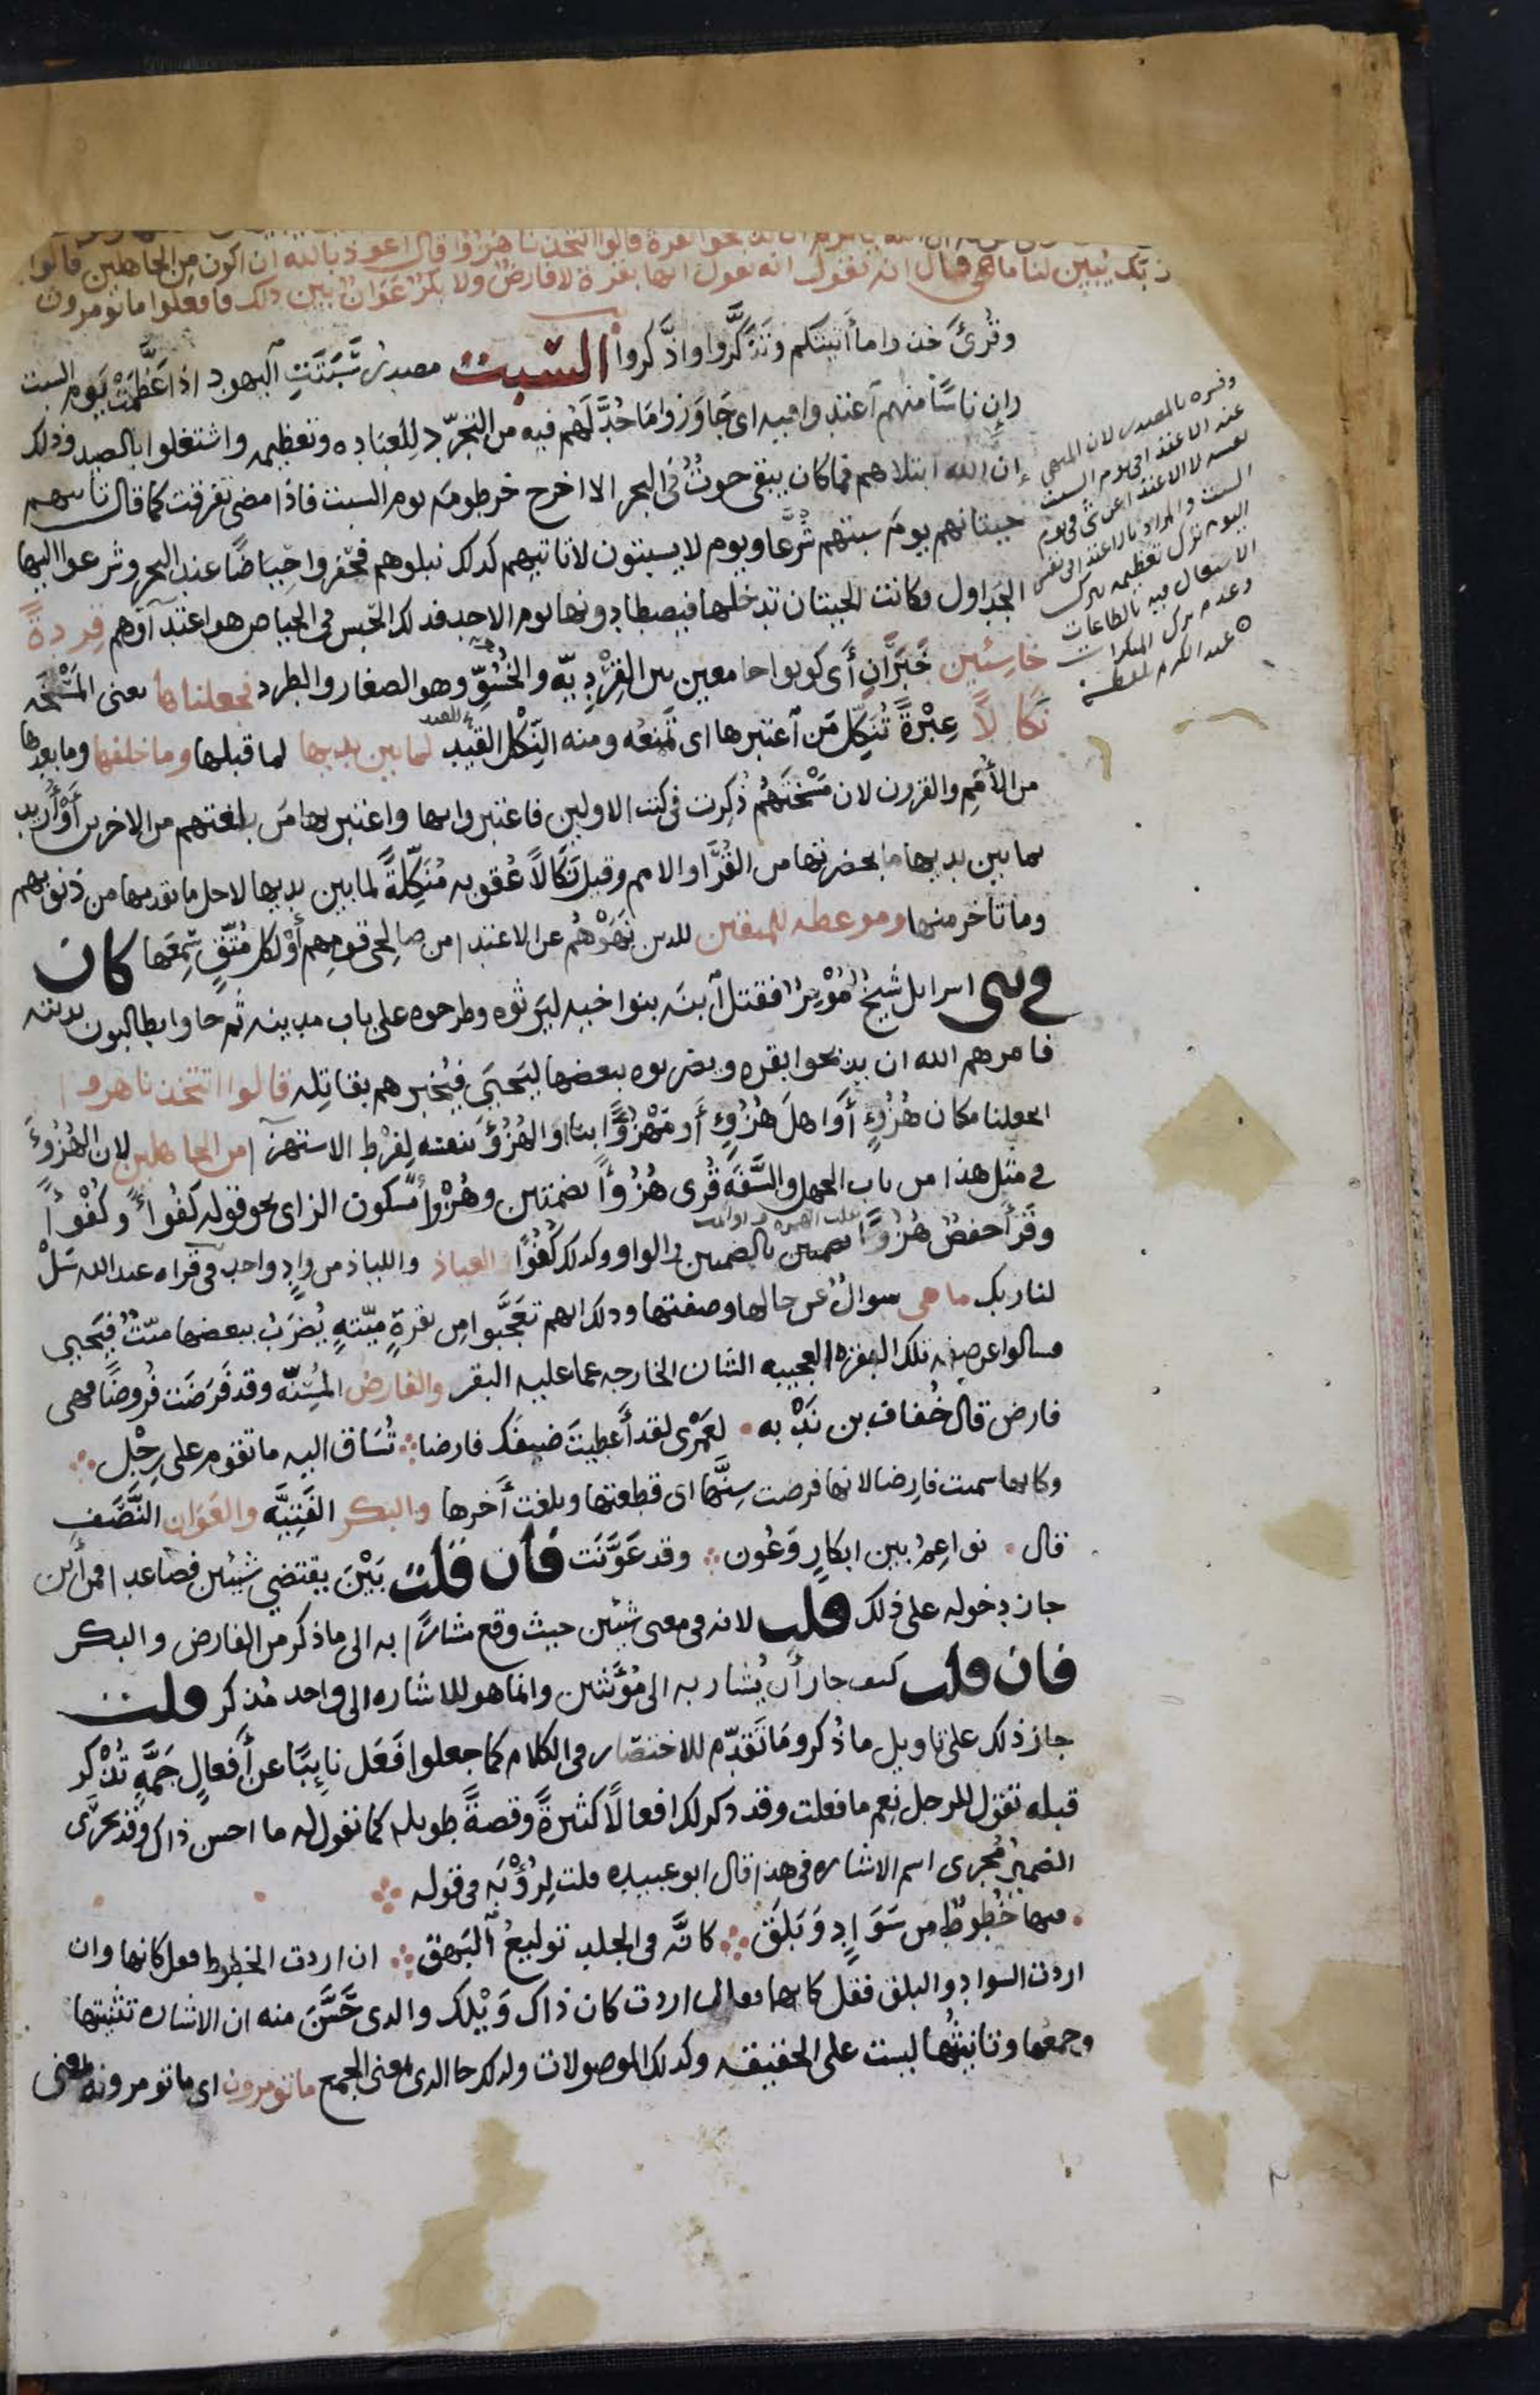 ان تذبحوا بقرة قالوا اتتخذنا هزؤا قال اعوذ بالله ان اكون من الجاهلين قالوا
ربك يبين لنا ما هي قال انه يقول انها بقرة لا فارض ولا بكر عوان بين ذلك فافعلوا ما تومرون
وقُرِئَ خذوا ما أتيتكم وتَذَكَّروا واذَّكروا السبت مصدر سَبَتَتِ اليهود اذا عَظَّمَتْ يوم السبت
وان ناسًا منهم اعتدوا فيه اى جاوَزوا ما حُدَّ لَهُم فيه من التجرّد للعباده وتعظيمه واشتغلوا بالصيد وذلك
ان الله ابتلاهم فما كان يبقى حوتٌ في البحر الا اخرج خرطومه يوم السبت فاذا مضى تفرقت كما قال تاتيهم
حيتانهم يوم سبتهم شُرَّعا ويوم لا يسبتون لا تاتيهم كذلك نبلوهم فحفروا حِياضًا عند البحر وشرعوا اليها
الجداول وكانت الحيتان تدخلها فيصطادونها يوم الاحد فذلك الحبس في الحياض هو اعتداؤهم قردةً
خاسئين خَبَرَانِ أَى كونوا جامعين بين القِرْدِيّه والخُسُوّ وهو الصغار والطرد فجعلناها يعنى المَسْخَه
نكالًا عِبْرةً تُنَكِّل مَن اعتبرها اى تَمنَعُه ومنه النِّكْل القيد لما بين يديها لما قبلها وما خلفها وما بعدها
من الأُمَمِ والقرون لان مَسْخَتَهُم ذُكِرت في كتب الاولين فاعتبروا بها واعتبر بها مَن بلغتهم من الاخرين أَوْ أُرِيد
بما بين يديها ما بحضرتها من القُرَى والامم وقيل نَكَالًا عُقوبه مُنَكِّلَةً لما بين يديها لاجل ما تقدمها من ذنوبهم
وما تأخر منها وموعظه للمتقين للذين نَهَوْهُم عن الاعتداء من صالحى قومهم أَوْ لكل مُتَّقٍ سَمِعَها كان
في بنى اسرايل شيخٌ مُوْسِرٌ فقتل ابنَه بنوا اخيه ليَرِثوه وطرحوه على باب مدينه ثم جاوا يطالبون بديته
فامرهم الله ان يذبحوا بقره ويضربوه ببعضها ليَحيَى فيُخبرهم بقاتِله قالوا اتتخذنا هزوا
اتجعلنا مكان هُزُوٍ أَو اهلَ هُزُوٍ أَو مَهْزُوًّا بنا او الهُزُؤَ نفسَه لِفَرْط الاستهزآ من الجاهلين لان الهُزُوءَ
في مثل هذا من باب الجهل والسَّفَه قُرى هُزُؤًا بضمتين وهُزْءًا بسكون الزاى نحو قوله كُفُواً وكُفْوًا
وقَرَأَ حفصٌ هُزُوًا بالضمتين والواو وكذلك كُفُوًا العياذ واللياذ من وادٍ واحد في قراه عبد الله سَلْ
لنا ربك ما هي سوالٌ عن حالها وصفتها وذلك انهم تَعَجَّبوا مِن بقرةٍ مَيّتهٍ يُضرَبُ ببعضها ميّتٌ فيَحيى
فسالوا عن صفه تلك البقره العجيبه الشان الخارجه عما عليه البقر والفارض المُسِنّه وقد فَرَضَت فُروضًا فهي
فارض قال خُفاف بن نَدْبه لعَمْرى لقد أَعطيتَ ضيفَك فارضا تُسَاق اليه ما تقوم على رِجْل
وكانها سميت فارِضا لانها فرضت سِنَّها اى قطعتها وبلغت أَخرها والبكر الفَتِيّه والعَوَان النَّصَف
قال نواعِمُ بين ابكارٍ وَعُون وقد عَوَّنَت فان قلت بَيْنَ يقتضي شيئين فصاعدا فمن أَين
جاز دخوله على ذلك قلت لانه في معنى شيئين حيث وقع مشارًا به الى ما ذكر من الفارض والبكر
فان قلت كيف جاز أَن يُشار به الى مُؤَنَّثين وانما هو للاشاره الى واحد مُذكر قلت
جاز ذلك على تاويل ما ذُكر ومَا تَقدّم للاختصار في الكلام كما جعلوا فَعَل نايِبًا عن أَفعالٍ جَمَّهٍ تُذْكر
قبله تقول للرجل نِعْم ما فعلت وقد ذكر لك افعالًا كثيرةً وقصةً طويله كما تقول له ما احسن ذاك وقد يَجْرَى
الضميرُ مُجرى اسم الاشاره في هذا قال ابو عبيده قلت لِرُؤْبَه في قوله
فيها خُطوطٌ من سَوَادٍ وَبَلَق كانَّه في الجلد توليعُ البَهق ان اردت الخطوط فقل كانها وان
اردت السواد والبلق فقل كانهما فقال اردت كان ذاك وَيْلك والذى حَسَّنَ منه ان الاشاره تثنيتها
وجمعها وتانيثُها ليست على الحقيقه وكذلك الموصولات ولذلك جا الذى بمعنى الجمع ما تومرون اى ما تومرونه بمعنى
وفسره بالمصدر لان النهى
عند الاعتدا في يوم السبت
السبت والمراد بالاعتدا في نفس
اليوم ترك تعظيمه بترك
الاشتغال فيه بالطاعات
وعدم ترك المنكرات